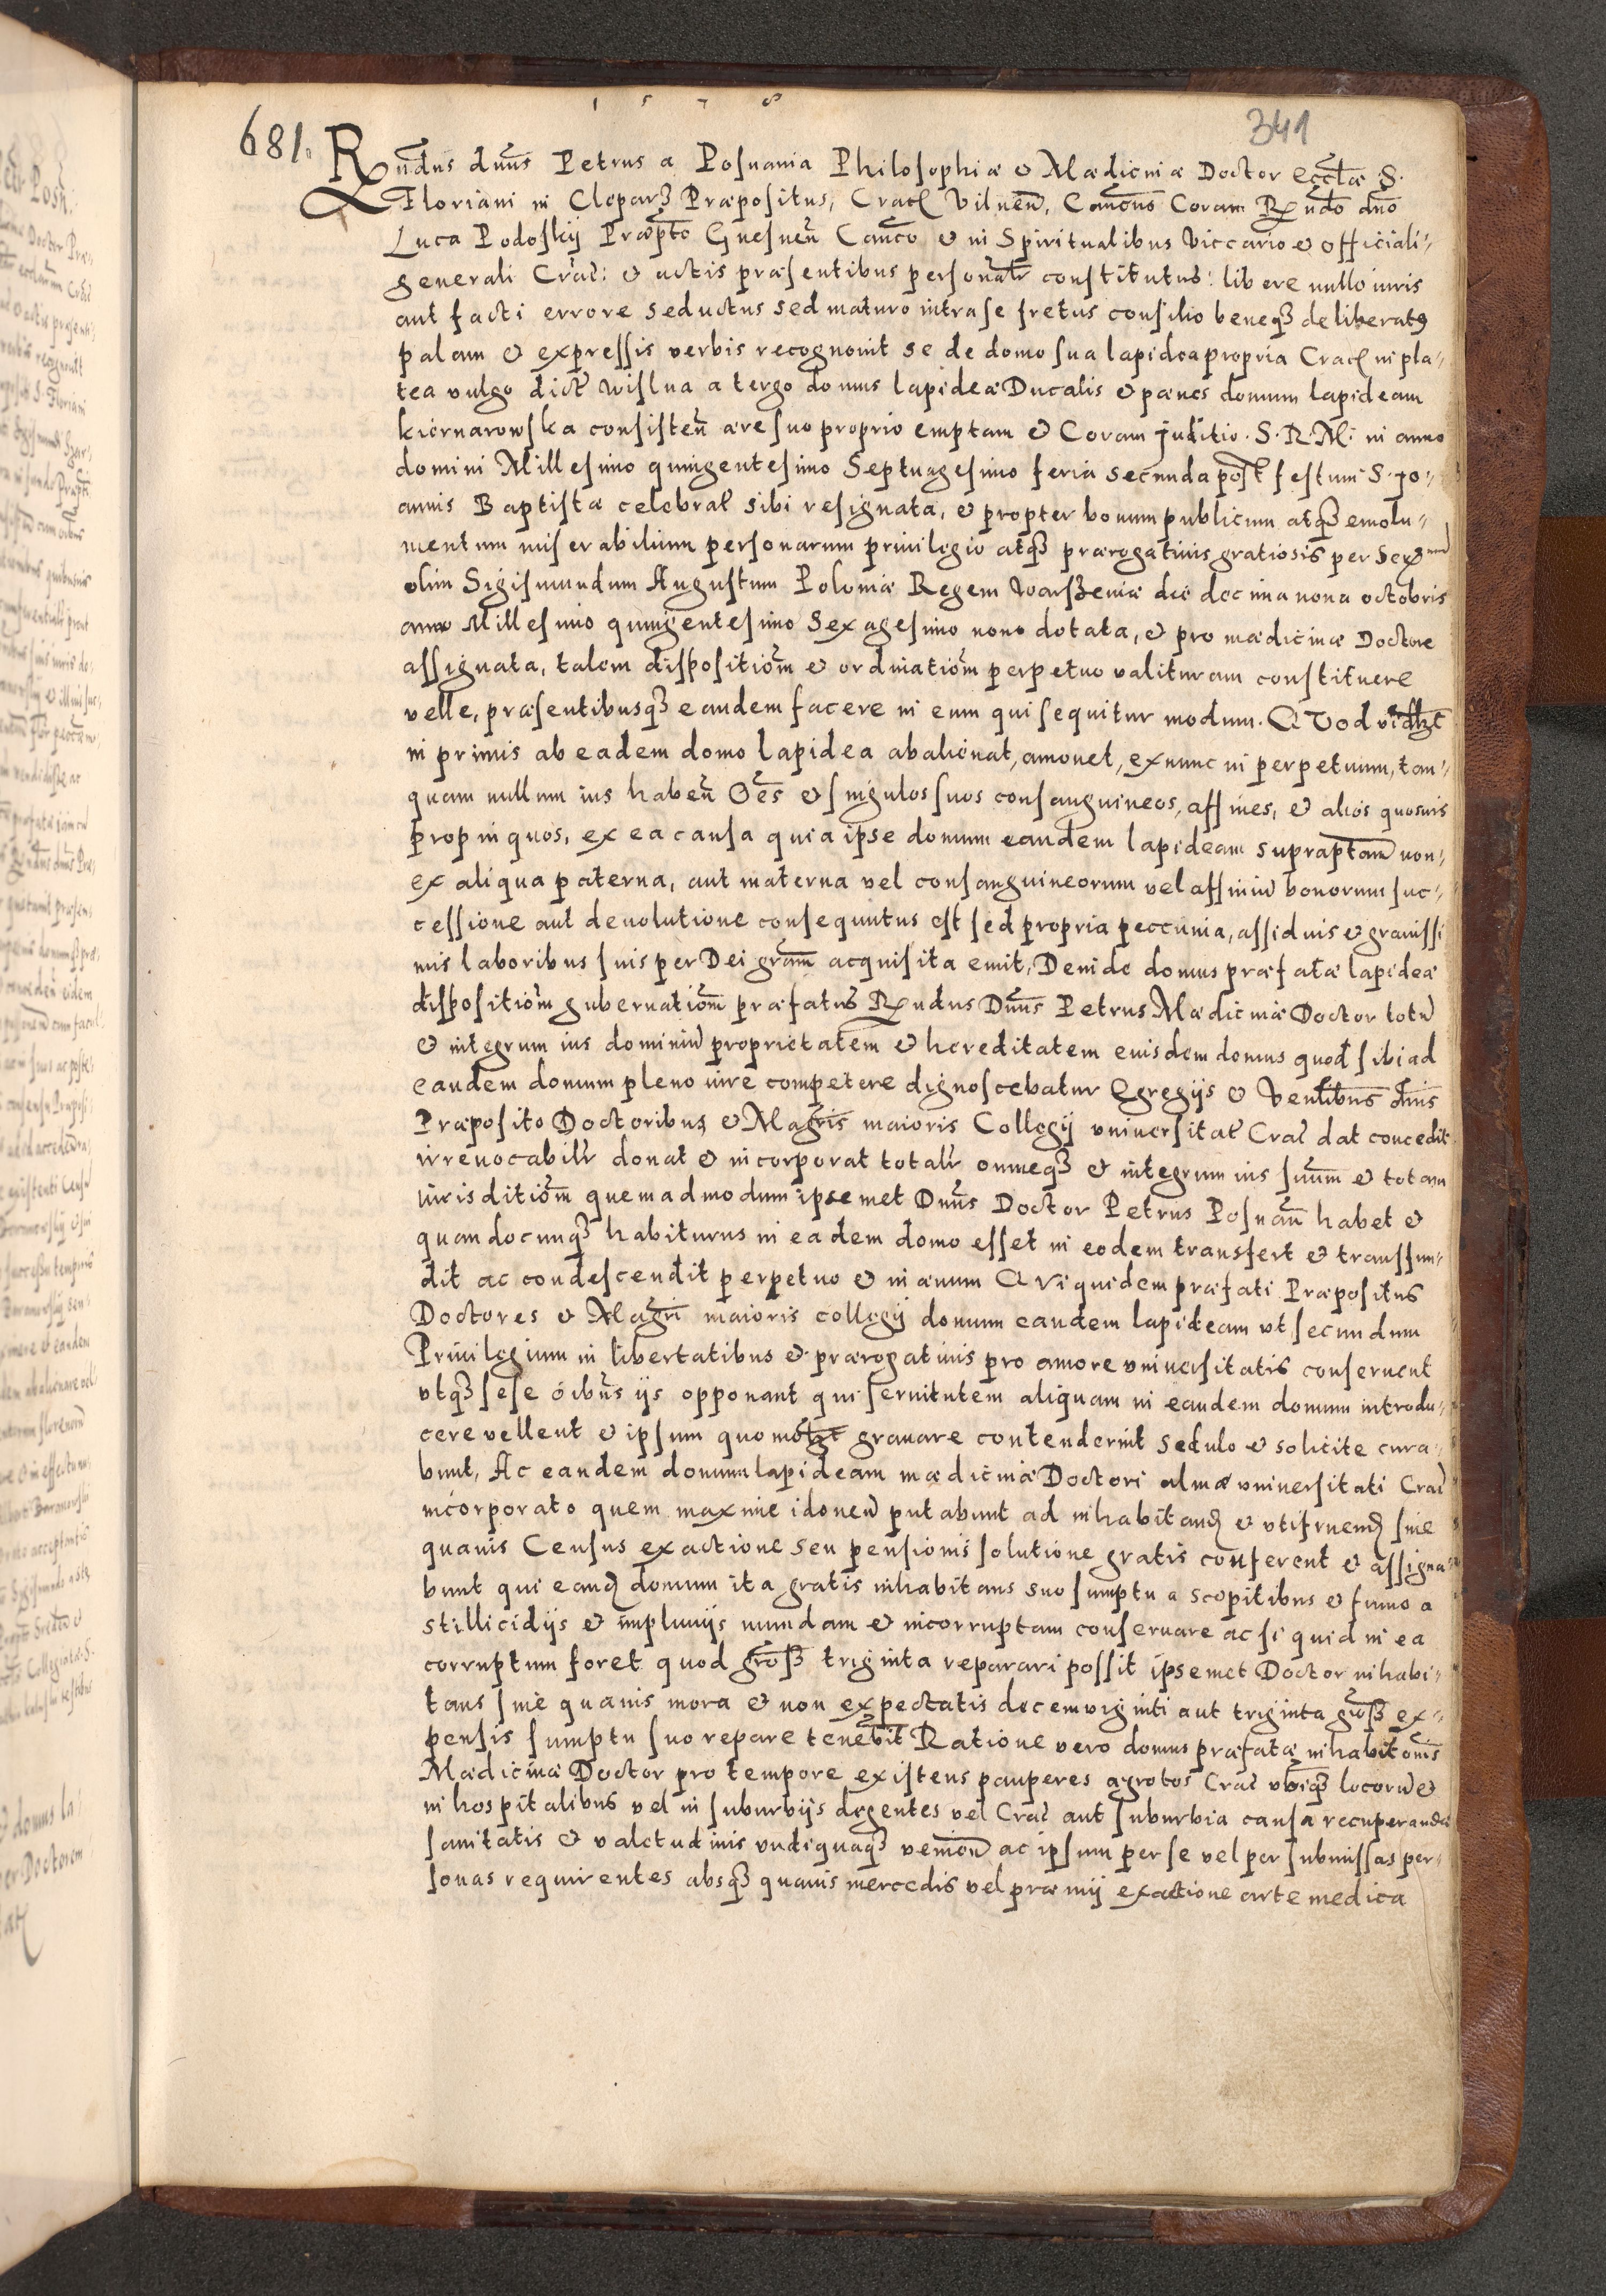 1 5 7 8
341
681. Rndus dnus Petrus a Posnania Philosophiæ & Mædicinæ Doctor Eccłæ S.
Floriani in Cleparz Præpositus, Crac̃ Vilneñ, Canonus Coram Rndo dno
Luca Podoskij Præpto Gnesneñ Canco & in Spiritualibus Viccario & officiali-
generali Crac: & actis præsentibus personalr constitutus: libere nullo iuris
aut facti errore seductus sed maturo intra se fretus consilio beneqȝ deliberatꝰ
palam & expressis verbis recognouit se de domo sua lapidea propria Crac̃ in pla-
tea vulgo dict̃ wislna a tergo domus lapideæ Ducalis & pænes domum lapideam
kiernarowska consisteñ ære suo proprio emptam & Coram Juditio. S. R. M: in anno
domini Millesimo quingentesimo Septuagesimo feria secunda post festum S. Jo-
annis Baptistæ celebrat̃ sibi resignata, & propter bonum publicum atqȝ emolu-
mentum miserabilium personarum priuilegio atqȝ prærogatiuis gratiosis per Serenmum
olim Sigismundum Augustum Poloniæ Regem Warszeuiæ die decima nona octobris
anno Millesimo quingentesimo Sexagesimo nono dotata, & pro mædicinæ Doctore
assignata, talem dispositiom & ordinatiom perpetuo valituram constituere
velle, præsentibusqȝ eandem facere in eum qui sequitur modum. QVod vidlzt
in primis ab eadem domo lapidea abalienat, amouet, exnunc in perpetuum, tan-
quam nullum ius habeñ Oes & singulos suos consanguineos, affines, & alios quosuis
propinquos, ex ea causa quia ipse domum eandem lapideam supraptam non-
ex aliqua paterna, aut materna vel consanguineorum vel affiniũ bonorum suc-
cessione aut deuolutione consequutus est sed propria peccunia, assiduis & grauissi
mis laboribus suis per Dei gram acquisita emit, Deinde domus præfatæ lapideæ
dispositiom gubernatiom præfatus Rndus Dnus Petrus Mædicinæ Doctor totũ
& integrum ius dominiũ proprietatem & hereditatem eiusdem domus quod sibi ad
eandem domum pleno iure competere dignoscebatur Egregijs & Venlibus dnis
Præposito Doctoribus & Magris maioris Collegij vniuersitat̃ Crac̃ dat concedit
irreuocabilr donat & incorporat totalr omneqȝ & integrum ius suum & totam
iurisditiom quemadmodum ipsemet Dnus Doctor Petrus Posnañ habet &
quandocunqȝ habiturus in eadem domo esset in eodem transfert & transfun-
dit ac condescendit perpetuo & in æuum QVi quidem præfati Præpositus
Doctores & Magri maioris collegij domum eandem lapideam vt secundum
Priuilegium in libertatibus & prærogatiuis pro amore vniuersitatis conseruent
vtqȝ sese oibus ijs opponant qui seruitutem aliquam in eandem domum introdu-
cere vellent & ipsum quomolzt grauare contenderint sedulo & solicite cura-
bunt, Ac eandem domum lapideam mædicinæ Doctori almæ vniuersitati Crac̃
incorporato quem maxime idoneũ putabunt ad inhabitand̃ & vtifruend̃ sine
quauis Census exactione seu pensionis solutione gratis conferent & assigna-
bunt qui eand̃ domum ita gratis inhabitans suo sumptu a scopitibus & fumo a
stillicidijs & impluuijs mundam & incorruptam conseruare ac si quid in ea
corruptum foret quod grosß triginta reparari possit ipsemet Doctor inhabi-
tans sine quauis mora & non expectatis decem viginti aut triginta grosß ex-
pensis sumptu suo repare tenebit Ratione vero domus præfatæ inhabitonis
Mædicinæ Doctor pro tempore existens pauperes ægrotos Crac̃ vbiqȝ locorũ &
in hospitalibus vel in suburbijs degentes vel Crac̃ aut suburbia causa recuperandæ
sanitatis & valetudinis vndiquaqȝ venien̄ ac ipsum per se vel per submissas per-
sonas requirentes absqȝ quauis mercedis vel præmij exactione arte medica